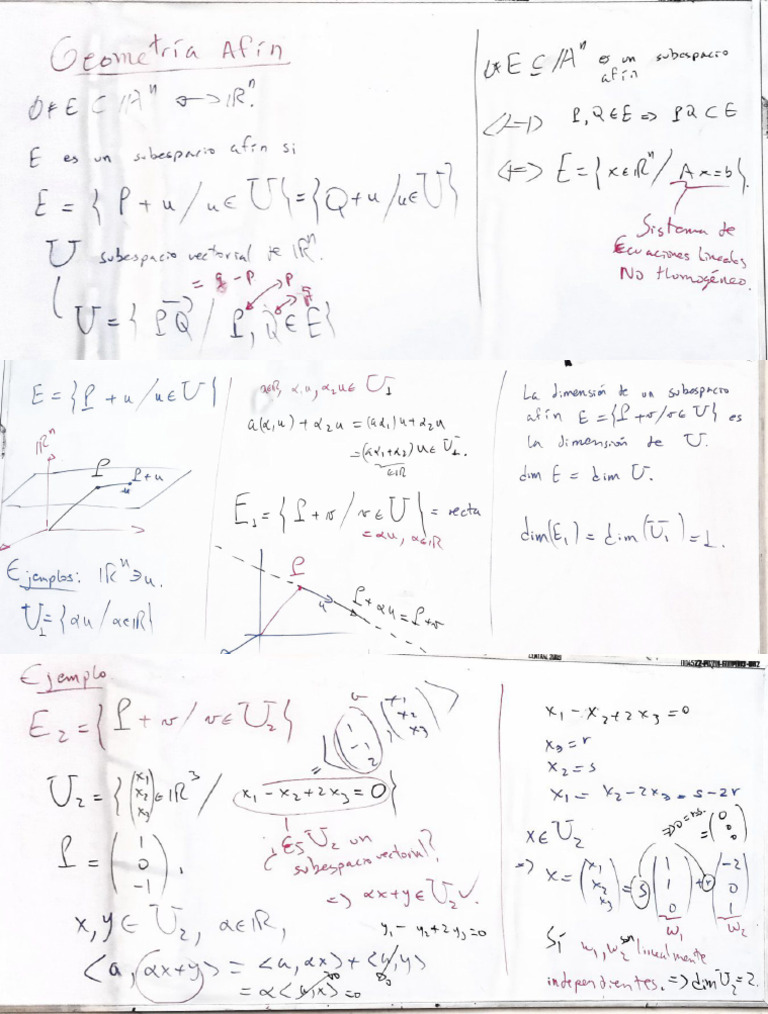 Geometría Afín
∅ ≠ E ⊂ 𝔸ⁿ ↔ ℝⁿ.
E es un subespacio afín si
E = { P + u / u ∈ U } = { Q + u / u ∈ U }
U subespacio vectorial de ℝⁿ.
= q - p
p
q
U = { PQ⃗ / P, Q ∈ E }
∅ ≠ E ⊆ 𝔸ⁿ es un subespacio
afín
<=> P, Q ∈ E => PQ ⊂ E
<=> E = { x ∈ ℝⁿ / Ax = b }.
Sistema de
Ecuaciones lineales
No Homogéneo.
E = { P + u / u ∈ U }
ℝⁿ
P
P + u
u
Ejemplos: ℝⁿ ∋ u.
U₁ = { αu / α ∈ ℝ }
a ∈ ℝ, α₁u, α₂u ∈ U₁
a(α₁u) + α₂u = (aα₁)u + α₂u
= (aα₁ + α₂)u ∈ U₁.
∈ ℝ
E₁ = { P + v / v ∈ U } = recta
= αu, α ∈ ℝ
P
u
P + αu = P + v
La dimensión de un subespacio
afín E = { P + v / v ∈ U } es
la dimensión de U.
dim E = dim U.
dim(E₁) = dim(U₁) = 1.
Ejemplo
E₂ = { P + v / v ∈ U₂ }
= < (1 -1 2), (x₁ x₂ x₃) >
U₂ = { (x₁ x₂ x₃) ∈ ℝ³ / x₁ - x₂ + 2x₃ = 0 }
¿Es U₂ un
subespacio vectorial?
P = (1 0 -1),
=> αx + y ∈ U₂ ✓.
x, y ∈ U₂, α ∈ ℝ,
y₁ - y₂ + 2y₃ = 0
<a, αx + y> = <a, αx> + <a, y>
0
= α<a, x> = 0
0
x₁ - x₂ + 2x₃ = 0
x₃ = r
x₂ = s
x₁ = x₂ - 2x₃ = s - 2r
x ∈ U₂
=> 0 = r = s.
= (0 0 0)
=> x = (x₁ x₂ x₃) = s (1 1 0) + r (-2 0 1)
w₁ w₂
Sí w₁, w₂ son linealmente
independientes. => dim U₂ = 2.